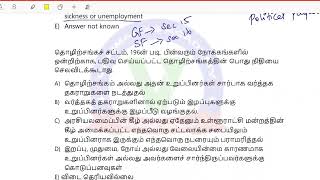 sickness or unemployment
E) Answer not known
GF → sec 15
SF → sec 16
Political
தொழிற்சங்கச் சட்டம், 1926ன் படி, பின்வரும் நோக்கங்களில்
ஒன்றிற்காக, பதிவு செய்யப்பட்ட தொழிற்சங்கத்தின் பொது நிதியை
செலவிடக்கூடாது
A) தொழிற்சங்கம் அல்லது அதன் உறுப்பினர்கள் சார்பாக வர்த்தக
தகராறுகளை நடத்துதல்
B) வர்த்தகத் தகராறுகளினால் ஏற்படும் இழப்புகளுக்கு
உறுப்பினர்களுக்கு இழப்பீடு வழங்குதல்.
C) அரசியலமைப்பின் கீழ் அல்லது ஏதேனும் உள்ளூராட்சி மன்றத்தின்
கீழ் அமைக்கப்பட்ட எந்தவொரு சட்டவாக்க சபையிலும்
உறுப்பினராக இருக்கும் எந்தவொரு நபரையும் பராமரித்தல்
D) இறப்பு, முதுமை, நோய் அல்லது வேலையின்மை காரணமாக
உறுப்பினர்கள் அல்லது அவர்களைச் சார்ந்திருப்பவர்களுக்கு
கொடுப்பனவுகள்
E) விடை தெரியவில்லை